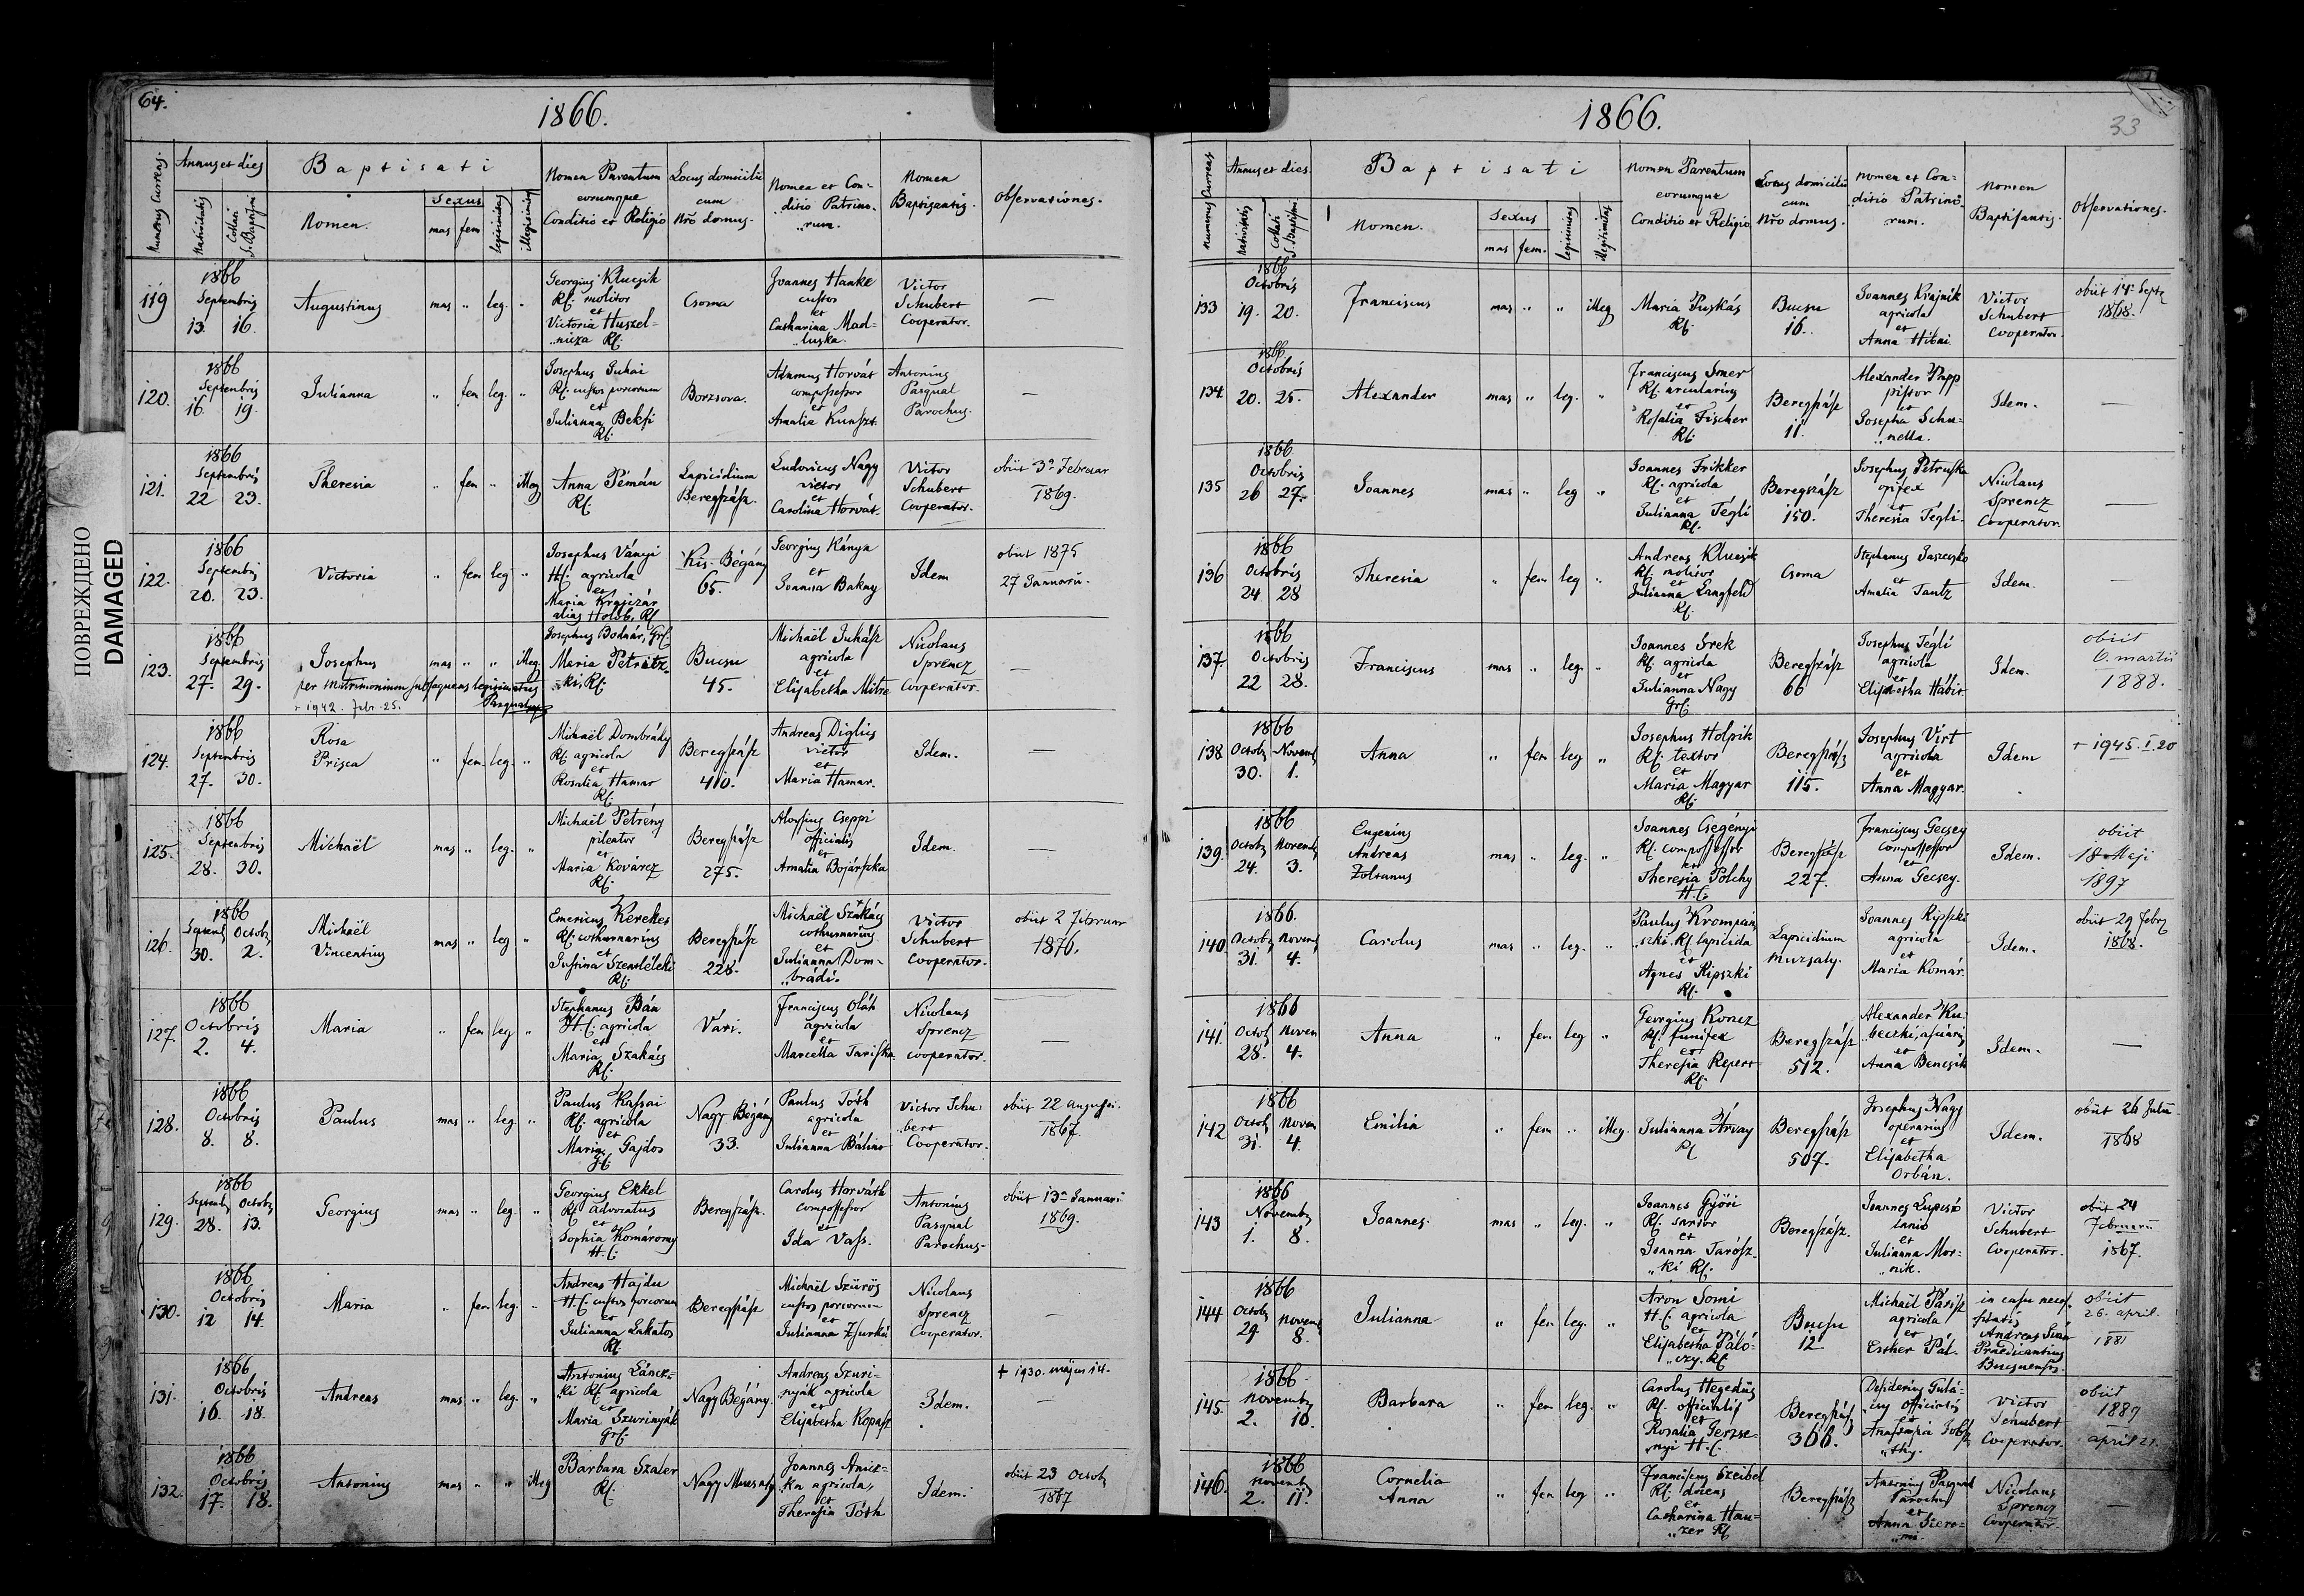 64.
1866.
Numerus Currens.
Annus et dies
Baptisati
Nomen Parentum
eorumque
Conditio et Religio
Locus domicilii
cum
Nro domus.
Nomen et Con=
ditio Patrino=
„rum.
Nomen
Baptizantis.
Observationes.
Nativitatis
Collati
S. Baptismi
Nomen.
Sexus
mas
fem
legitimitas
illegitimitas
119
1866
Septembris
13. 16.
Augustinus
mas „ leg. „
Georgius Klucsik
Rf. molitor
et
Victoria Huszel=
„nicza Rf.
Csoma
Joannes Hanke
custos
et
Catharina Mad=
„luska.
Victor
Schubert
Cooperator.
—
120.
1866
Septembris
16. 19.
Julianna
„ fem leg. „
Josephus Juhai
Rf. custos porcorum
et
Julianna Beksi
Rf.
Borzsova.
Horvát
compossessor
et
Amalia Kunszt.
Antonius
Pasqual
Parochus.
—
121.
1866
Septembris
22 23.
Theresia
„ fem „ illeg
Anna Pémán
Rf.
Lapicidium
Beregszász.
Ludovicus Nagy
vietor
et
Carolina Horvát.
Victor
Schubert
Cooperator.
obiit 3a Februar
1869.
122.
1866
Septembris
20. 23.
Victoria
„ fem leg „
Josephus Ványi
H.C. agricola
et
Maria Krajczár
alias Holub, Rf
Kis-Bégány
65.
Georgius Kánya
et
Joanna Bakny
Idem
obiit 1875
27 Januarii.
123.
1866
Septembris
27. 29.
Josephus
mas „ „ illeg.
per matrimonium subsequens legitimatus
+ 1942. febr. 25.
Pasqual
Josephus Bodnár, Grf.
Maria Petratz=
„ki, Rf.
Bucsu
45.
Michaël Juhász
agricola
et
Elisabetha Mitre
Nicolaus
Sprencz
Cooperator.
—
124.
1866
Septembris
27. 30.
Rosa
Prisca
„ fem. leg. „
Michaël Dombrády
Rf. agricola
et
Rosalia Hamar
Rf.
Beregszász
410.
Andreas Diglus
vietor
et
Maria Hamar.
Idem.
—
125.
1866
Septembris
28. 30.
Michaël
mas „ leg. „
Michaël Petrény
pileator
et
Maria Kovárcz
Rf.
Beregszász
275.
Aloysius Cseppi
officialis
et
Amalia Bojárszka
Idem.
—
126.
1866
Septemb Octob
30. 2.
Michaël
Vincentius
mas „ leg „
Emericus Kerekes
Rf. cothurnarius
et
Justina Szentléleki
Rf.
Beregszász
228.
Michaël Szakács
cothurnarius
et
Julianna Dom=
„brádi.
Victor
Schubert
Cooperator.
obiit 2 Februar
1870.
127.
1866
Octobris
2. 4.
Maria
„ fem leg „
Stephanus Bán
H.C. agricola
et
Maria Szakács
Rf.
Vári.
Franciscus Oláh
agricola
et
Marcella Tariska.
Nicolaus
Sprencz
cooperator.
—
128.
1866
Octobris
8. 8.
Paulus
mas „ leg. „
Paulus Kassai
Rf. agricola
et
Maria Gajdos
Nagy Bégány
33.
Paulus Tóth
agricola
et
Julianna Bálint
Victor Schu=
„bert
Cooperator.
obiit 22 augusti.
1867.
129.
1866
Septemb Octob
28. 13.
Georgius
mas „ leg. „
Georgius Ekkel
Rf. advocatus
et
Sophia Komáromy
H.C.
Beregszász.
Carolus Horváth
compossessor
et
Ida Vass.
Antonius
Pasqual
Parochus.
obiit 13a Januari
1869.
130.
1866
Octobris
12 14.
Maria
„ fem leg. „
Andreas Hajdu
H.C. custos porcorum
et
Julianna Lakatos
Rf.
Beregszász
Michaël Szürös
custos porcorum
et
Julianna Zsurkai
Nicolaus
Sprencz
Cooperator.
—
131.
1866
Octobris
16. 18.
Andreas
mas „ leg. „
Antonius Láncz=
„ki Rf. agricola
et
Maria Szurinyák
Grf.
Nagy Bégány.
Andreas Szuri=
nyák agricola
et
Elisabetha Kopasz
Idem.
+ 1930. május 14.
—
132.
1866
Octobris
17. 18.
Antonius
mas „ „ illeg
Barbara Szaler
Rf.
Nagy Muzsaly
Joannes Anicz=
„ka agricola,
et
Theresia Tóth
Idem.
obiit 23 Octob
1867
33
1866.
Numerus Currens
Annus et dies.
Baptisati
Nomen Parentum
eorumque
Conditio et Religio
Locus domicilii
cum
Nro domus.
Nomen et Con=
ditio Patrino=
rum.
Nomen
Baptisantis.
Observationes.
Nativitatis
Collati
S. Baptismi
Nomen.
Sexus
mas
fem.
legitimitas
illegitimitas
133
1866
Octobris
19. 20.
Franciscus
mas „ „ illeg
Maria Puskás
Rf.
Bucsu
16.
Joannes Krajnik
agricola
et
Anna Hibai
Victor
Schubert
Cooperator.
obiit 14. Septb
1868.
134.
1866
Octobris
20. 25.
Alexander
mas „ leg. „
Franciscus Imer
Rf. arcularius
et
Rosalia Fischer
Rf.
Beregszász
11.
Alexander Papp
pistor
et
Josepha Schu=
„nella.
Idem.
—
135
1866
Octobris
26 27.
Joannes
mas „ leg „
Joannes Frikker
Rf. agricola
et
Julianna Tégli
Rf.
Beregszász
150.
Josephus Petruska
opifex
et
Theresia Tégli.
Nicolaus
Sprencz
Cooperator.
—
136
1866
Octobris
24 28
Theresia
„ fem leg „
Andreas Klucsik
Rf. molitor
et
Julianna Langfeld
Rf.
Csoma
Stephanus Jaszecsko
et
Amalia Tautz
Idem.
—
137.
1866
Octobris
22 28.
Franciscus
mas „ leg. „
Joannes Grek
Rf. agricola
et
Julianna Nagy
Grf.
Beregszász
66
Josephus Tégli
agricola
et
Elisabetha Hábir.
Idem.
obiit
6. martii
1888.
138
1866
Octob Novemb
30. 1.
Anna
„ fem leg. „
Josephus Holpik
Rf. textor
et
Maria Magyar
Rf.
Beregszász
115.
Josephus Virt
agricola
et
Anna Magyar.
Idem
+ 1945. I. 20
139.
1866
Octob Novemb
24. 3.
Eugenius
Andreas
Zoltanus
mas „ leg. „
Joannes Csegényi
Rf. compossessor
et
Theresia Polchy
H.C.
Beregszász
227.
Franciscus Gecsey
compossessor
et
Anna Gecsey.
Idem.
obiit
18 Maji
1897
140.
1866.
Octob Novemb
31. 4.
Carolus
mas „ leg. „
Paulus Krompán
„szki. Rf lapicida
et
Agnes Ripszki
Rf.
Lapicidium
Muzsaly.
Joannes Ripszki
agricola
et
Maria Komár.
Idem.
obiit 29 febr
1868.
141.
1866
Octob Novem
28. 4.
Anna
„ fem leg „
Georgius Koncz
Rf. funifex
et
Theresia Repert
Rf.
Beregszász
512.
Alexander Ku=
„beczki,
et
Anna Bencsik
Idem.
—
142
1866
Octob Novem
31. 4.
Emilia
„ fem „ illeg.
Julianna Árvay
Rf
Beregszász
507.
Josephus Nagy
operarius
et
Elisabetha
Orbán.
Idem.
obiit 26 Julii
1868
143
1866
Novemb
1. 8.
Joannes.
mas „ leg. „
Joannes Györi
Rf. sartor
et
Joanna Tarósz=
„ki Rf.
Beregszász.
Joannes Lupcsó
lanio
et
Julianna Mor=
„nik.
Victor
Schubert
Cooperator.
obiit 24
Februarii
1867.
144
1866
Octob Novemb
29. 8.
Julianna
„ fem leg. „
Aron Somi
H.C. agricola
et
Elisabetha Páló=
„czy. Rf
Bucsu
12
Michaël Párisz
agricola
et
Esther Pál.
in casu neces
sitatis
Andreas Iván
Praedicantius
Bucsuensis.
obiit
26. april.
1881
145.
1866.
Novemb
2. 10
Barbara
„ fem leg. „
Carolus Hegedüs
Rf. officialis
et
Rosalia Gerzse=
„nyi H.C.
Beregszász
366.
Desiderius Gulá=
„csy officialis
et
Anastasia
„thy.
Victor
Schubert
Cooperator.
obiit
1889
april 21.
146.
1866
Novemb
2. 11.
Cornelia
Anna
„ fem leg „
Franciscus Czeibel
Rf. docens
et
Catharina Hau=
„zer Rf
Beregszász
Antonius Pasqual
Parochus
et
Anna Szera=
„mi.
Nicolaus
Sprencz
Cooperator.
—
ПОВРЕЖДЕНО
DAMAGED